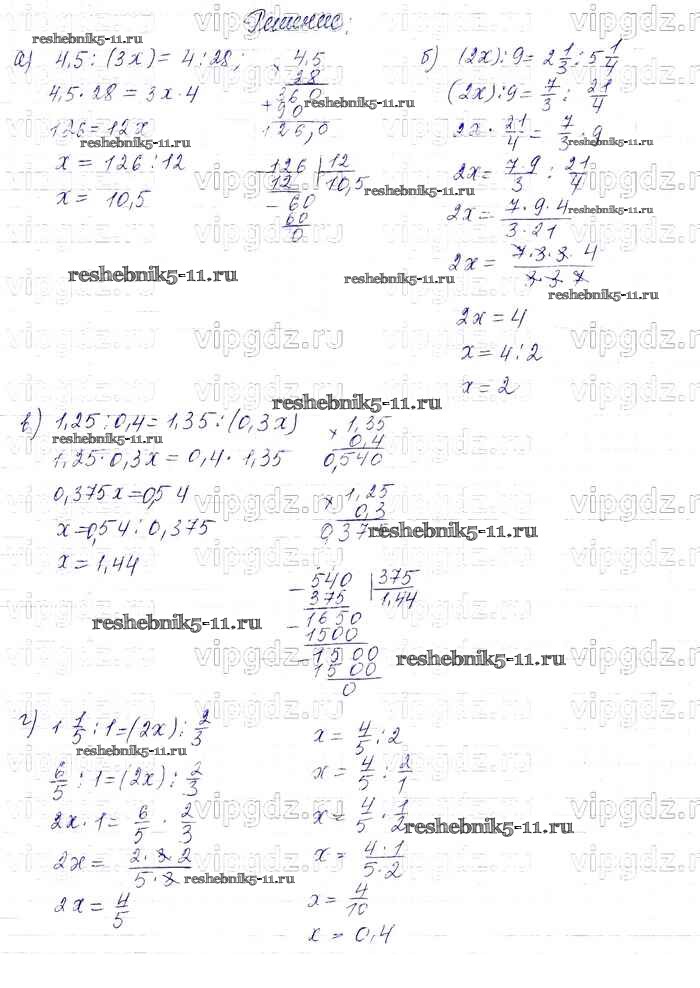 Решение:
а) 4,5 : (3x) = 4 : 28;
4,5 · 28 = 3x · 4
126 = 12x
x = 126 : 12
x = 10,5
× 4,5
28
360
+ 90
126,0
− 126 | 12
12 | 10,5
− 60
60
0
б) (2x) : 9 = 2 1/3 : 5 1/4
(2x) : 9 = 7/3 : 21/4
2x · 21/4 = 7/3 · 9
2x = 7·9/3 : 21/4
2x = 7·9·4/3·21
2x = 7·3·3·4/3·3·7
2x = 4
x = 4 : 2
x = 2
в) 1,25 : 0,4 = 1,35 : (0,3x)
1,25 · 0,3x = 0,4 · 1,35
0,375x = 0,54
x = 0,54 : 0,375
x = 1,44
× 1,35
0,4
0,540
× 1,25
0,3
0,375
− 540 | 375
375 | 1,44
− 1650
1500
− 1500
1500
0
г) 1 1/5 : 1 = (2x) : 2/3
6/5 : 1 = (2x) : 2/3
2x · 1 = 6/5 · 2/3
2x = 2·3·2/5·3
2x = 4/5
x = 4/5 : 2
x = 4/5 : 2/1
x = 4/5 · 1/2
x = 4·1/5·2
x = 4/10
x = 0,4
reshebnik5-11.ru
vipgdz.ru